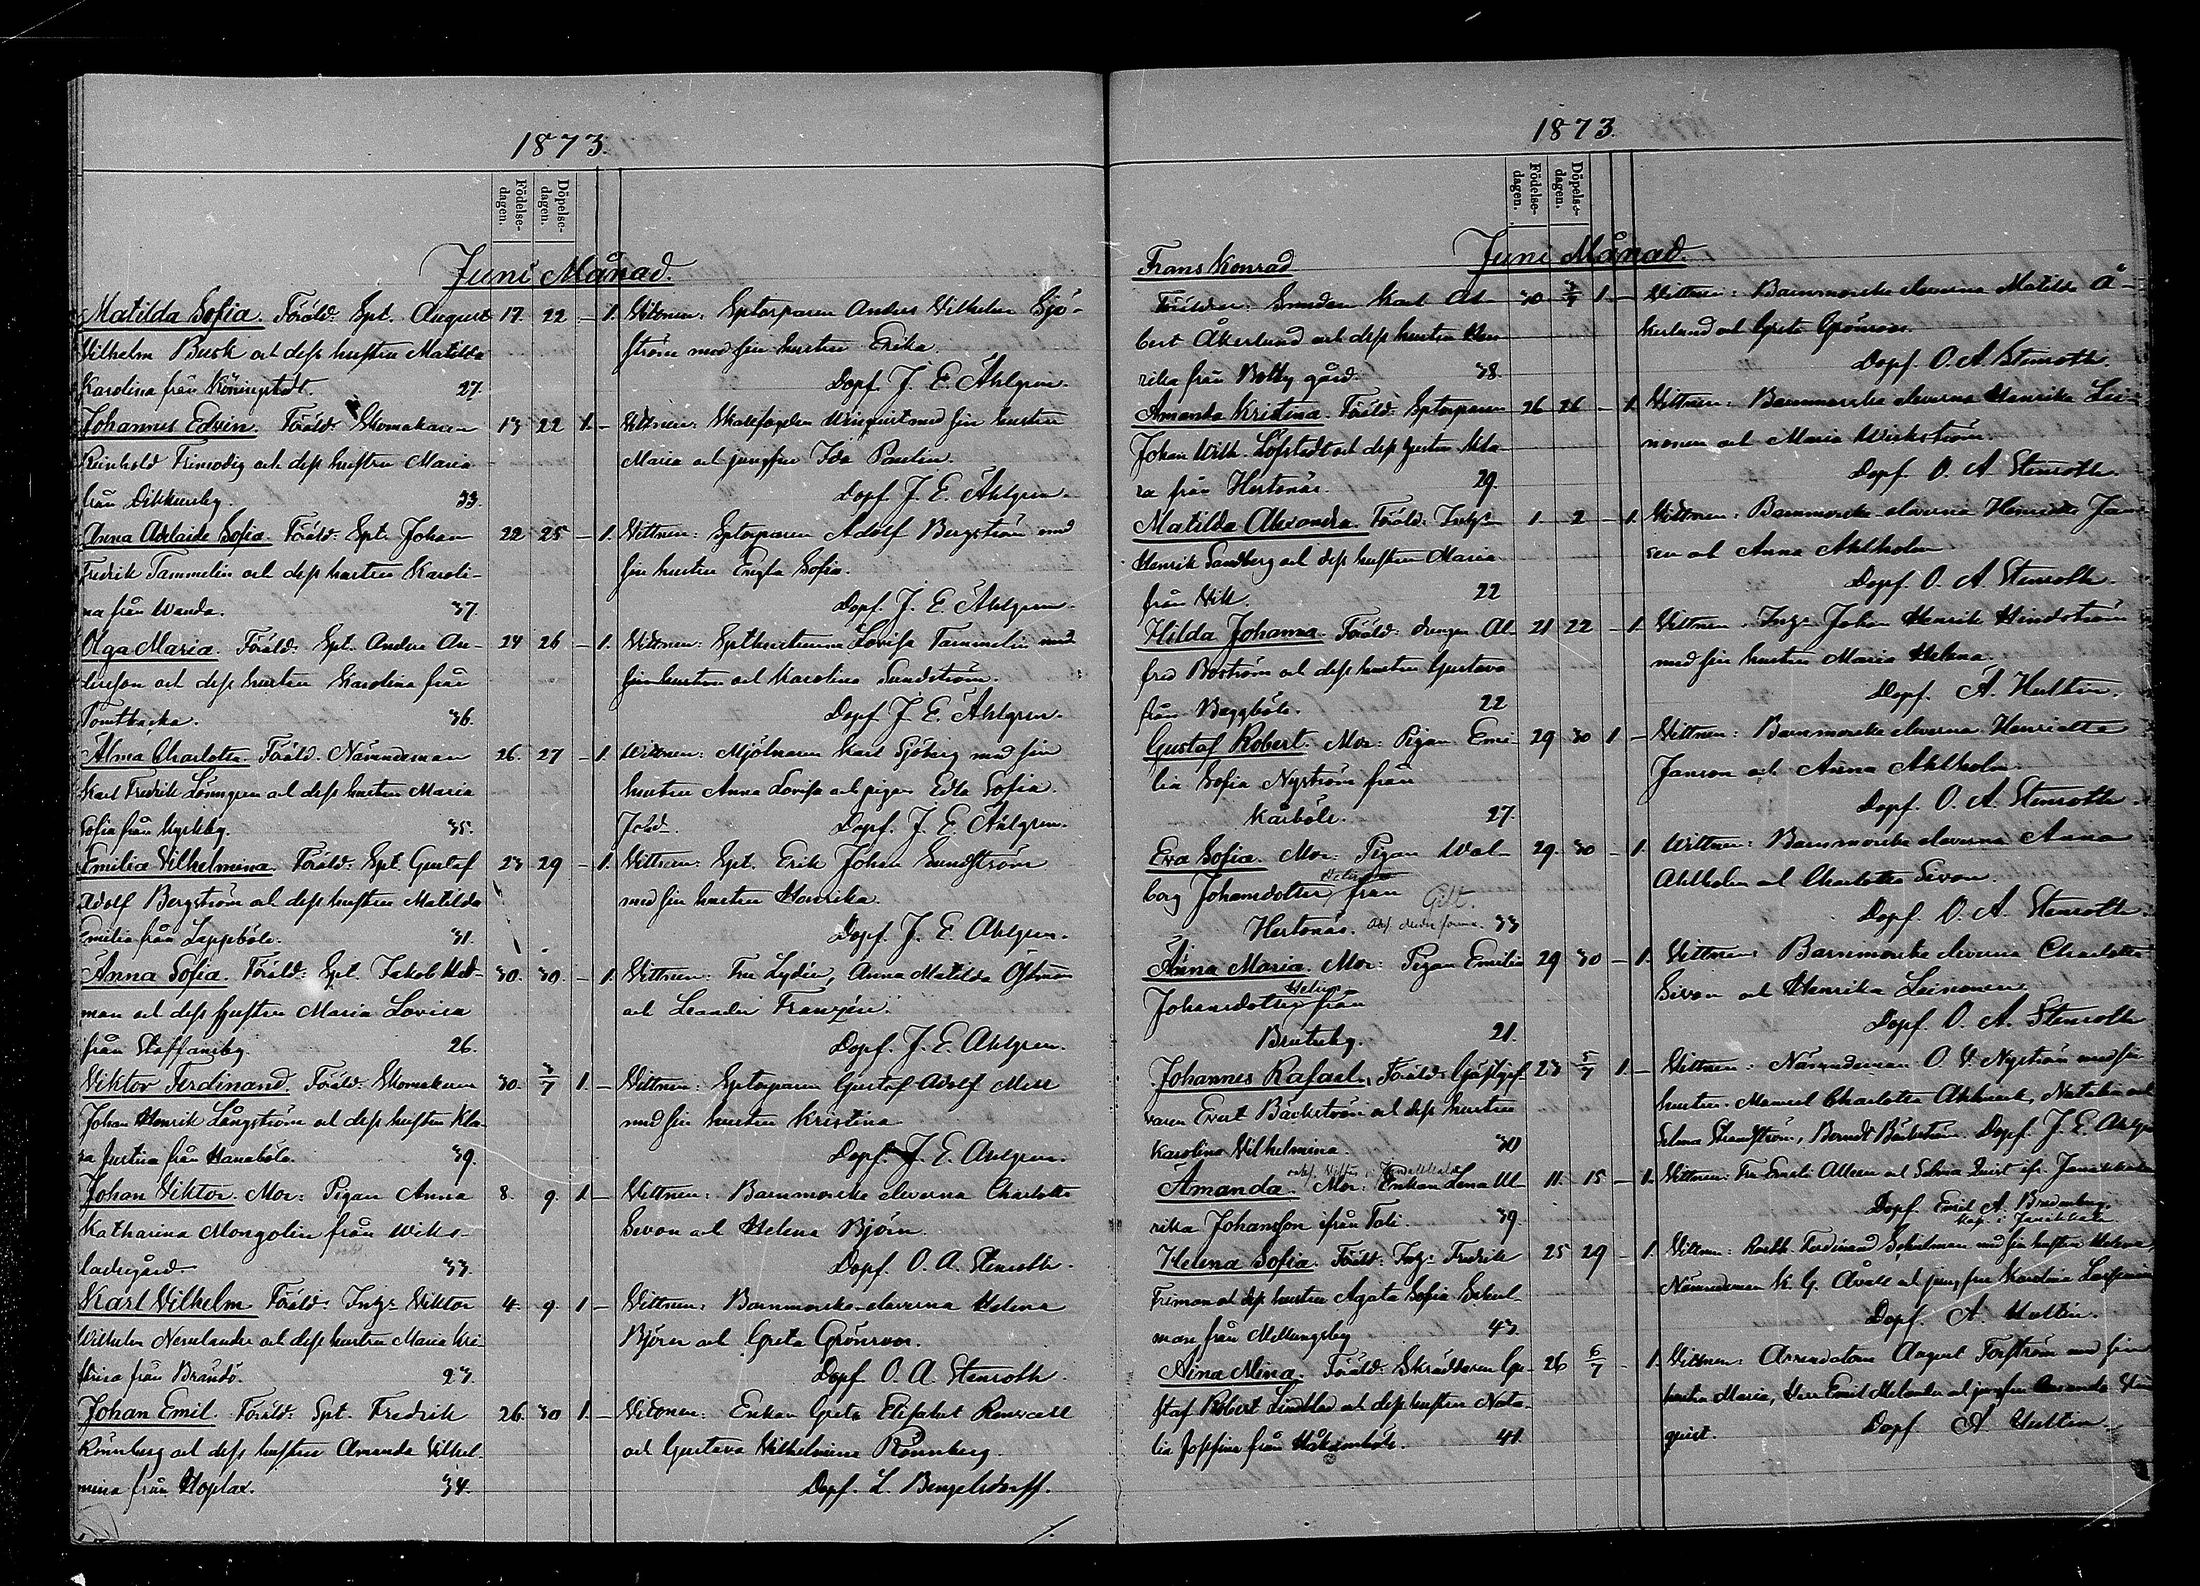 1873.
Födelse-dagen.
Döpelse-dagen.
Juni Månad.
Matilda Sofia. Föräld: Spt. August 17. 22 – 1. Vittnen: Sptorparen Anders Vilhelm Sjö-
Vilhelm Busk och dess hustru Matilda ström med sin hustru Erika.
Karolina från Köningstedt. 27. Dopf. J. E. Åhlgren.
Johannes Edvin. Föräld: Skomakaren 13 22 1. – Vittnen: med sin hustru
Reinhold Frimodig och dess hustru Maria Maria och jungfru Ida Paulin.
från Dickursby. 33. Dopf. J. E. Åhlgren.
Anna Adelaide Sofia. Föräld: Spt. Johan 22 25 – 1. Vittnen: Sptorparen Adolf Bergström med
Fredrik Tammelin och dess hustru Karoli- sin hustru Engla Sofia.
na från Wanda. 37. Dopf. J. E. Åhlgren.
Olga Maria. Föräld: Spt. Anders An- 24 26 – 1. Vittnen: Spthustrurna Lovisa Tammelin med
dersson och dess hustru Karolina från sin hustru och Karolina Sundström.
Tomtbacka. 36. Dopf. J. E. Åhlgren.
Alma Charlotta. Föräld. Nämndeman 26. 27 – 1. Vittnen: Mjölnaren Karl Sjöberg med sin
Karl Fredrik Lönngren och dess hustru Maria hustru Anna Lovisa och pigan Edla Sofia
Sofia från Kyrkby. 35. Dopf. J. E. Åhlgren.
Emilia Vilhelmina. Föräld: Spt. Gustaf 23 29 – 1. Vittnen: Spt. Erik Johan Sundström
Adolf Bergström och dess hustru Matilda med sin hustru Henrika.
Emilia från Lappböle. 31. Dopf. J. E. Ahlgren.
Anna Sofia. Föräld: Spt. Jakob Hed- 30. 30. – 1. Vittnen: Fru Lydia, Anna Matilda Öström
man och dess hustru Maria Lovisa och Leander Franzén.
från Staffansby. 26. Dopf. J. E. Ahlgren.
Viktor Ferdinand. Föräld: Skomakaren 30. 3/7 1. – Vittnen: Sptorparen Gustaf Adolf
Johan Henrik Långström och dess hustru Kla- med sin hustru Kristina
ra Justina från Hanaböle. 39. Dopf. J. E. Ahlgren.
Johan Viktor. Mor: Pigan Anna 8. 9. 1. – Vittnen: Barnmorske eleverna Charlotta
Katharina Mongolin från Wiks- Sevon och Helena Björn.
ladugård. 33. Dopf. O. A. Stenroth.
Karl Vilhelm Föräld: Inhs Viktor 4. 9. 1 – Vittnen: Barnmorske-eleverna Helena
Wilhelm Nernlander och dess hustru Maria Kri- Björn och Greta Grönroos.
stina från Brändö. 23. Dopf O. A. Stenroth.
Johan Emil. Föräld: Spt. Fredrik 26. 30 1. – Vittnen: Enkan Greta Elisabet
Rönnberg och dess hustru Amanda Vilhel- och Gustava Vilhelmina Rönnberg.
mina från Hoplax. 34. Dopf. L. Bengelsdorff.
1873.
Födelse-dagen.
Döpelse-dagen.
Juni Månad.
Frans Konrad
Föräldrar: Smeden Karl Al- 30 3/7 1 – Vittnen: Barnmorske eleverna Matilda Å-
bert Åkerlund och dess hustru Hen- kerlund och Greta Grönroos.
rika från Botby gård. 38. Dopf O. A. Stenroth.
Amanda Kristina. Föräld: Sptorparen 26 26 – 1. Vittnen: Barnmorske eleverna Henrika Lei-
Johan Wilh. Löfstedt och dess hustru Kla- nonen och Maria Wickström.
ra från Hertonäs. 29. Dopf. O. A. Stenroth.
Matilda Alexandra. Föräld: Inhs 1 2 – 1. Vittnen: Barnmorske eleverna Henriette Jan-
Henrik Sandberg och dess hustru Maria sen och Anna Ahlholm
från Vik. 22 Dopf. O. A. Stenroth.
Hilda Johanna. Föräld: drengen Al- 21 22 – 1. Vittnen. Inhs Johan Henrik Hindström
fred Boström och dess hustru Gustava med sin hustru Maria Helena.
från Baggböle. 22 Dopf. A. Hultin.
Gustaf Robert. Mor: Pigan Emi- 29 30 1 – Vittnen: Barnmorske eleverna Henrietta
lia Sofia Nyström från Janson och Anna Ahlholm.
Kårböle. 27. Dopf. O. A. Stenroth.
Eva Sofia. Mor: Pigan Wal- 29. 30 – 1. Vittnen: Barnmorske eleverna Anna
borg Johansdotter från Gift. Ahlholm och Charlotta Sevon.
Hertonäs. 33 Dopf. O. A. Stenroth.
Anna Maria. Mor: Pigan Emilia 29 30 – 1. Vittnen: Barnmorske eleverna Charlotta
Johansdotter från Sevon och Henrika Leinonen.
Brutuby. 21. Dopf. O. A. Stenroth
Johannes Rafael. Föräld: Gästgif- 23 5/7 1 – Vittnen: Nämndeman O. W. Nyström med sin
varen Evert Bäckström och dess hustru hustru. Mamsel Charlotta Natalia och
Karolina Vilhelmina. 30 Selma Strandström, Berndt Bäckström. Dopf. J. E. Ahlgren
Amanda. Mor: Enkan Lena Ul- 11. 15 – 1. Vittnen: Fru Emili och Selma Quist ifr. Janakkala
rika Johansson ifrån Tali. 39. Dopf. Emil A. Bredenberg.
Kap. i Janakkala
Helena Sofia. Föräld: Inhs Fredrik 25 29 – 1. Vittnen: Ferdinand Schulman med sin hustru Helena,
Friman och dess hustru Agata Sofia Schul- Nämndeman K. G. Åvall och jungfru Karolina
man från Mellungsby 43. Dopf. A. Hultin.
Aina Mina. Föräld: Skräddaren Gu- 26 6/7 – 1. Vittnen: Arrendatorn August Forström med sin
staf Robert Lindblad och dess hustru Nata- hustru Maria, Herr Emil Helander och jungfru Amanda
lia Josefina från Håkansböle. 41. quist. Dopf A Hultin